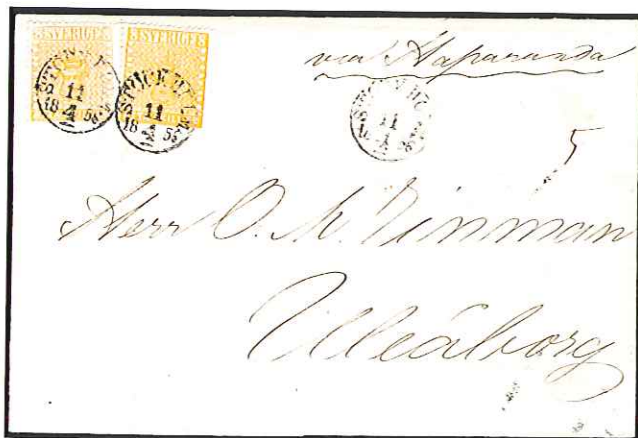 8 SVERIGE 8 8 SVERIGE 8
STOCKHOLM
11
4
18 58
STOCKHOLM
11
4
18 58
via Haparanda
STOCKHOLM
11
4
5
Herr O. M.
Uleåborg